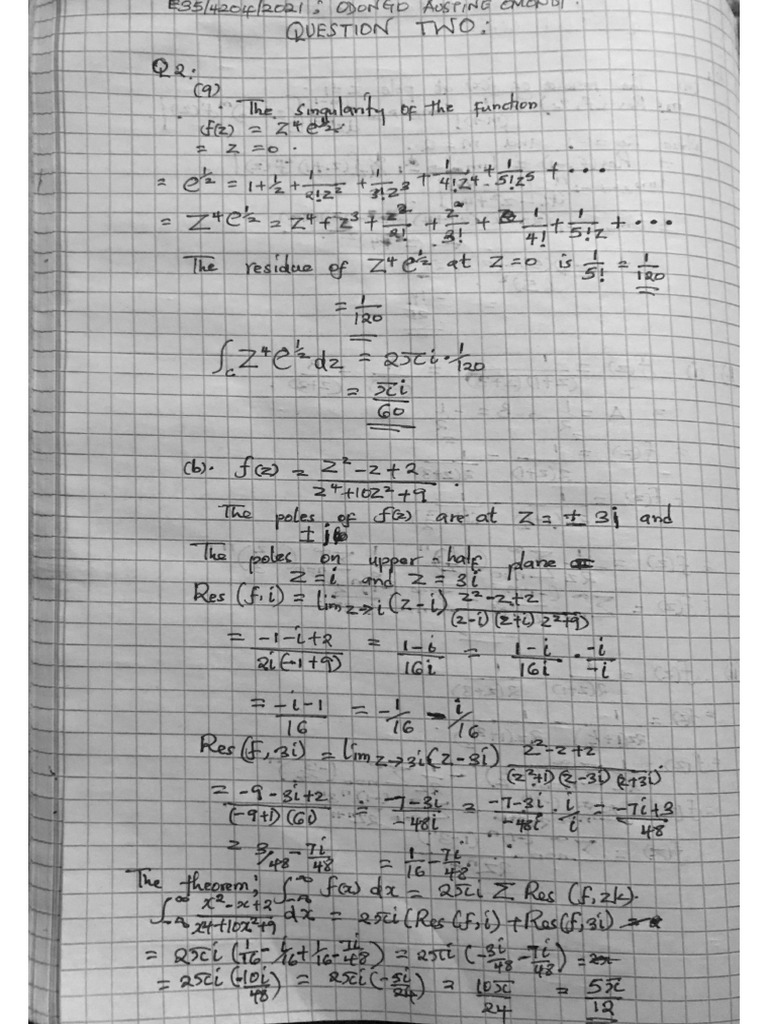 E35/4204/2021; ODONGO AUSPING OMONDI.
QUESTION TWO:
Q2:
(a)
The singularity of the function
f(z) = z⁴e^{1/z}.
= z = 0.
= e^{1/z} = 1 + 1/z + 1/2!z² + 1/3!z³ + 1/4!z⁴ + 1/5!z⁵ + ...
= z⁴e^{1/z} = z⁴ + z³ + z²/2! + z/3! + 1/4! + 1/5!z + ...
The residue of z⁴e^{1/z} at z=0 is 1/5! = 1/120
= 1/120
∫_c z⁴e^{1/z} dz = 2πi · 1/120
= πi/60
(b). f(z) = z²-z+2 / z⁴+10z²+9.
The poles of f(z) are at z = ± 3i and
± i
The poles on upper-half plane
z = i and z = 3i
Res (f,i) = lim z→i (z-i) z²-z+2 / (z-i)(z+i) z²+9)
= -1-i+2 / 2i(-1+9) = 1-i / 16i = 1-i / 16i · -i/-i
= -i-1 / 16 = -1/16 - i/16
Res (f, 3i) = lim z→3i (z-3i) z²-z+2 / (z²+1)(z-3i)(z+3i)
= -9-3i+2 / (-9+1)(6i) = -7-3i / -48i = -7-3i / -48i · i/i = -7i+3 / 48
= 3/48 - 7i/48 = 1/16 - 7i/48.
The theorem; ∫_{-∞}^{∞} f(x) dx = 2πi Σ Res (f, zk).
∫_{-∞}^{∞} x²-x+2 / x⁴+10x²+9 dx = 2πi (Res(f,i) + Res(f,3i)
= 2πi (1/16 - i/16 + 1/16 - 7i/48) = 2πi (-3i/48 - 7i/48) =
= 2πi (-10i/48) = 2πi (-5i/24) = 10π/24 = 5π/12